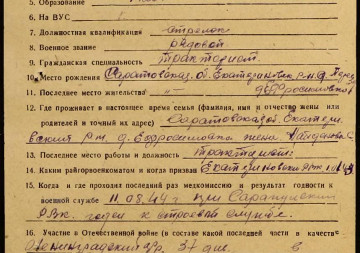 5. Образование
6. На ВУС
7. Должностная квалификация стрелок
8. Военное звание рядовой
9. Гражданская специальность тракторист
10. Место рождения Саратовская об. Екатериновск р-н д.
11. Последнее место жительства —"—
12. Где проживает в настоящее время семья (фамилия, имя и отчество жены или
родителей и точный их адрес) Саратовская об. Екатери
р-н д. жена
13. Последнее место работы и должность тракторист
14. Каким райгорвоенкоматом и когда призван РВК
15. Когда и где проходил последний раз медкомиссию и результат годности к
военной службе 11.08.44 г при
РВК. годен к строевой службе.
16. Участие в Отечественной войне (в составе какой последней части и качестве
Ленинградский фр. 37 в